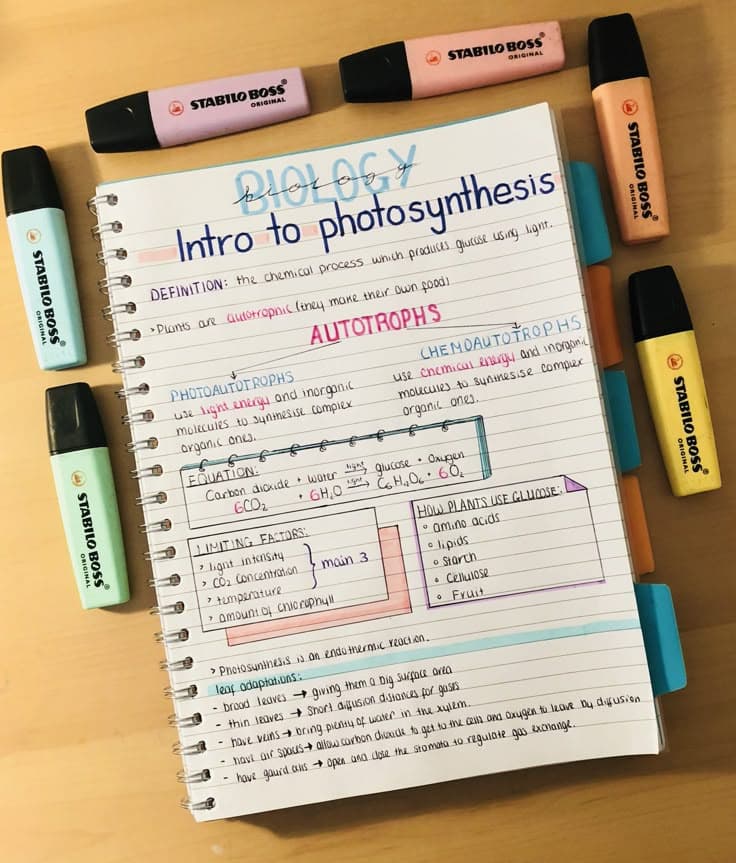 STABILO BOSS®
ORIGINAL
STABILO BOSS®
ORIGINAL
STABILO BOSS®
ORIGINAL
STABILO BOSS®
ORIGINAL
STABILO BOSS®
ORIGINAL
STABILO BOSS®
ORIGINAL
BIOLOGY
biology
Intro to photosynthesis
DEFINITION: the chemical process which produces glucose using light.
> Plants are autotrophic (they make their own food)
AUTOTROPHS
PHOTOAUTOTROPHS
use light energy and inorganic
molecules to synthesise complex
organic ones.
CHEMOAUTOTROPHS
use chemical energy and inorganic
molecules to synthesise complex
organic ones.
EQUATION:
Carbon dioxide + water light→ glucose + oxygen
6CO₂ + 6H₂O light→ C₆H₁₂O₆ + 6O₂
LIMITING FACTORS:
> light intensity
> CO₂ concentration
> temperature
> amount of chlorophyll
} main 3
HOW PLANTS USE GLUCOSE:
◦ amino acids
◦ lipids
◦ starch
◦ cellulose
◦ Fruit
> Photosynthesis is an endothermic reaction.
leaf adaptations:
- broad leaves → giving them a big surface area
- thin leaves → short diffusion distances for gases
- have veins → bring plenty of water in the xylem.
- have air spaces → allow carbon dioxide to get to the cells and oxygen to leave by diffusion
- have gaurd cells → open and close the stomata to regulate gas exchange.